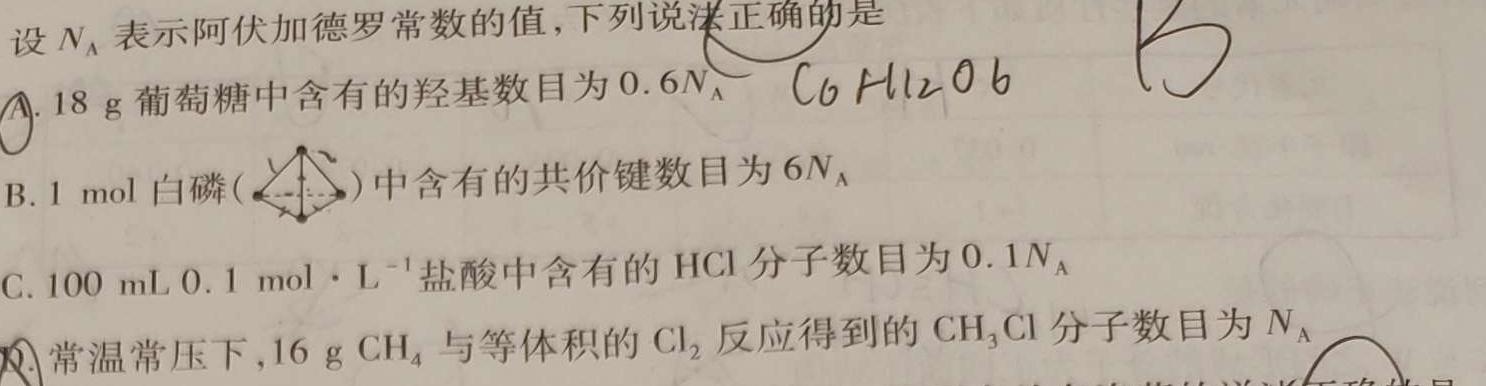 设 N_A 表示阿伏加德罗常数的值,下列说法正确的是 B
A. 18 g 葡萄糖中含有的羟基数目为 0.6N_A C6H12O6
B. 1 mol 白磷( )中含有的共价键数目为 6N_A
C. 100 mL 0.1 mol·L⁻¹盐酸中含有的 HCl 分子数目为 0.1N_A
D. 常温常压下,16 g CH₄ 与等体积的 Cl₂ 反应得到的 CH₃Cl 分子数目为 N_A